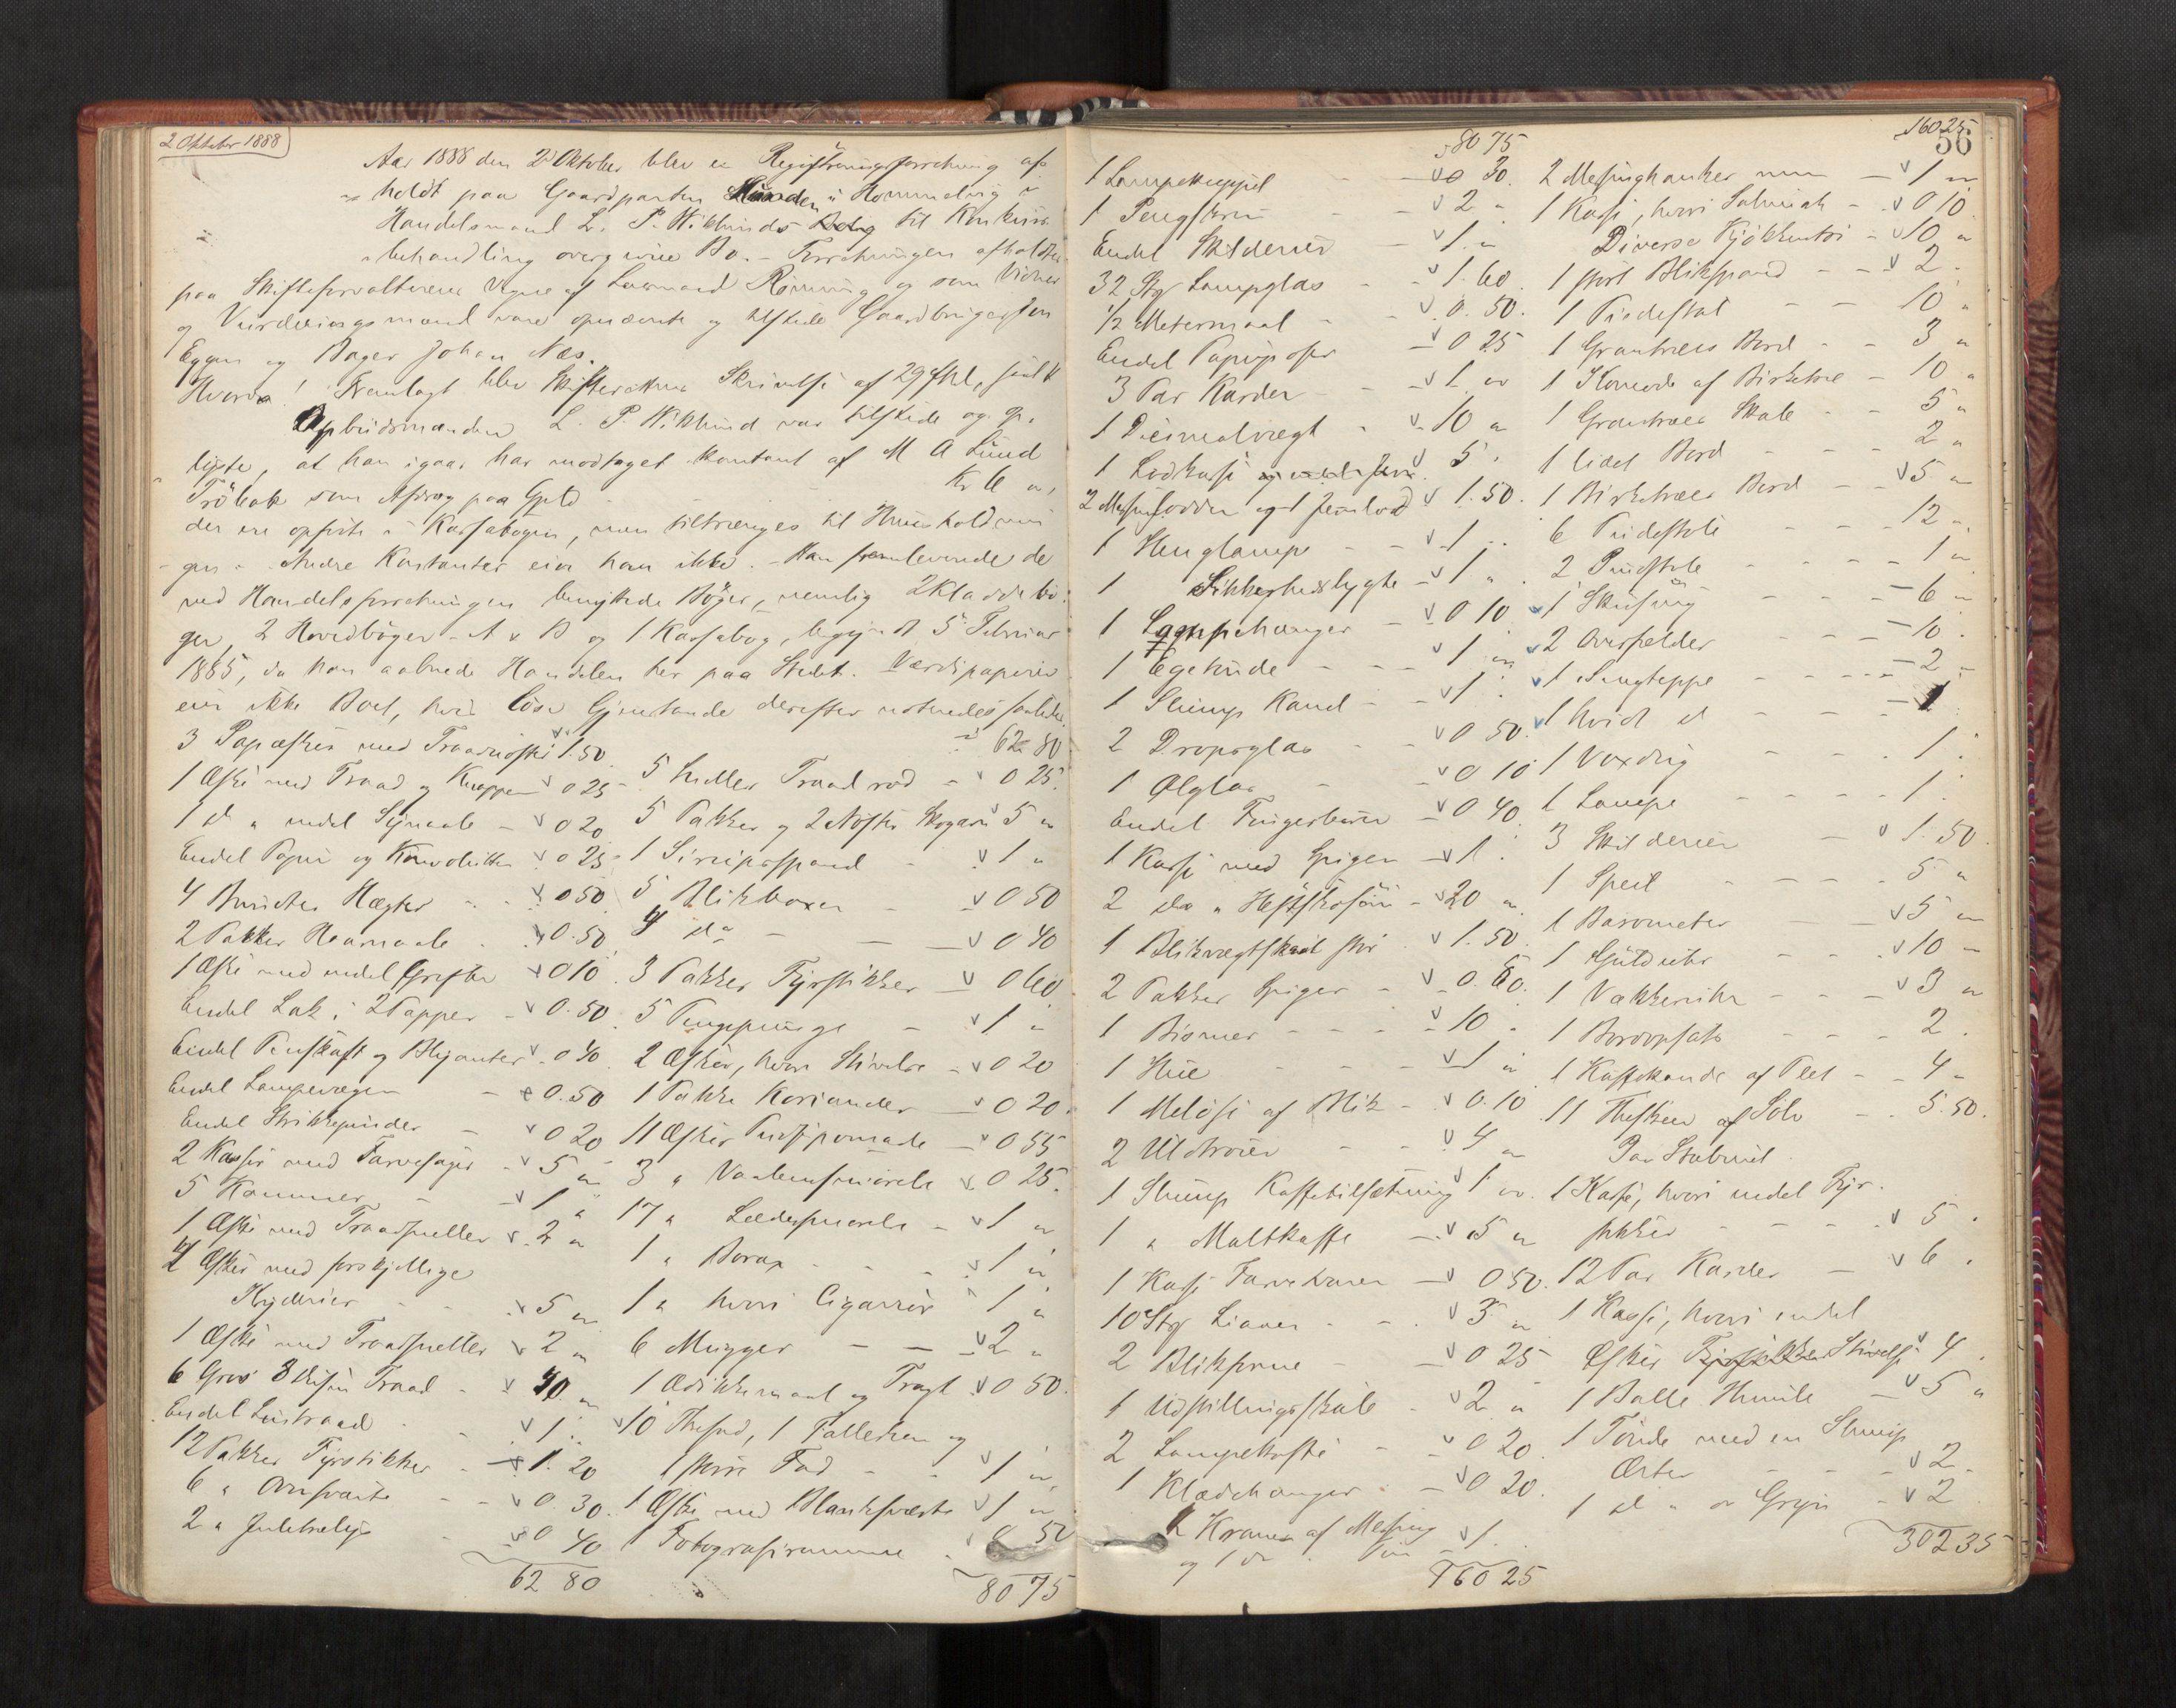 2 Oktober 1888
Aar 1888 den 2 Oktober blev en Registreringsforretning af-
holdt paa Gaardparten i Hommelvig i
Handelsmand L. P. Wiklunds Bolig til Konkurs
behandling overgivne Bo. - Forretningen afholdtes
paa Skifteforvalterens Vegne af Lensmand Rönning og som Vidner
og Vurderingsmænd vare opnævnte og tilstede Gaardbruger
Eggen og Bager Johan Næs.
Hvorda! Fremlagt blev Skifterettens Skrivelse af 29 f.M.
Opbudsmanden L. P. Wiklund var tilstede og op-
lyste, at han igaar har modtaget kontant af M A Lund
Tröbak som Afdrag paa Gjeld Kr 6 "
der ere opförte i Kassabogen, men tiltrænges til Husholdnin
gen. Andre Kontanter eier han ikke. - Han fremleverede de
ved Handelsforretningen benyttede Böger, nemlig 2 Kladdebö-
ger, 2 Hovedböger - A & B og 1 Kassabog, begyndt 5 Februar
1885, da han aabnede Handelen her paa Stedet. Værdipapirer
eier ikke Boet, hvis löse Gjenstande derefter noteredes saaledes
3 Papæsker med Traadnöster 1.50
1 Æske med Traad og Knapper 0 25
1 do " endel Synaale 0 20
Endel Papir og Konvolutter 0 25
4 Hægter 0 50
2 Pakker Haarnaale 0.50
1 Æske med endel Grifter 0 10
Endel Lak i 2 Papper 0.50
Endel Penskaft og Blyanter 0 40
Endel Lampevæger 0.50
Endel Strikkepinder 0 20
2 Kasser med Farvesager 5 "
5 Kammer 1 "
1 Æske med Traadsneller 2 "
4 Æsker med forskjellige
Krydderier 5 "
1 Æske med Traadsneller 2 "
6 Gros 8 Dusin Traad 40 "
Endel Lintraad 1 "
12 Pakker Fyrstikker 1 20
6 " Ovnsværte 0.30
2 " Juletrelys 0 40
62 80
62 80
5 Sneller Traad röd 0 25
5 Pakker og 2 Nöster 5 "
1 Sirupsspand 1 "
5 Blikboxer 0 50
4 do 0 40
3 Pakker Fyrstikker 0 60
5 Pengepunge 1 "
2 Æsker, hvori Stivelse 0 20
1 Pakke Koriander 0 20
11 Æsker Pudspomade 0 55
3 " Vaabensmörelse 0 25
17 " Lædersmörelse 1 "
1 " Borax 1 "
1 " hvori Cigarrer 1 "
6 Mugger 2 "
1 Ædikkemaal og Tragt 0 50
10 Thefad, 1 Tallerken og
1 större Fad 1 "
1 Æske med Blanksværte 1 "
1 Fotografiramme 0 50
80 75
56
80 75
1 Lampekuppel 0 30
1 Pengeskrin 2 "
Endel Skilderier 1 "
32 Stk Lampeglas 1.60
1/2 Metermaal 0.50
Endel Papirposer 0 25
3 Par Karder 1 "
1 Desimalvægt 10 "
1 Lodkasse 5 "
2 Messinglodder og 1 Jernlod 1.50
1 Hænglampe 1 "
1 Sikkerhedslygte 1 "
1 Lampehænger 0 10
1 Egetynde 1 "
1 Slump Kanel 1 "
2 Dropsglas 0 50
1 Ølglas 0 10
Endel Fingerböller 0 40
1 Kasse med Spiger 1 "
2 do " Hesteskosöm 20 "
1 Blikvægtskaal stor 1.50
2 Pakker Spiger 0.60
1 Bismer 10 "
1 Hue 1 "
1 Meløse af Blik 0.10
2 Uldtröier 4 "
1 Slump Kaffetilsætning 1 "
1 " Maltkaffe 5 "
1 Kasse Farvevarer 0 50
10 Stk Liaaer 3 "
2 Blikspanne 0 25
1 Udstillingsskab 2 "
2 Lampekoste 0 20
1 Klædehænger 0 20
2 Kraner af Messing
og 1 do " Tin 1
160 25
160 25
2 Messinghanker 1 "
1 Kasse, hvori Salmiak 0 10
Diverse Kjökkentöi 10 "
1 stort Blikspand 2 "
1 Piedestal 10 "
1 Grantræes Bord 3 "
1 Komode af Birketræ 10 "
1 Grantræes Skab 5 "
1 lidet Bord 2 "
1 Birketræes Bord 5 "
6 12 "
2 1 "
1 Skindfæl 6 "
2 Overfelder 10 "
1 Sengteppe 2 "
1 hvidt do 1
1 Voxdug 1 "
1 Lampe 1 "
3 Skilderier 1.50
1 Speil 5 "
1 Barometer 5 "
1 Gulduhr 10 "
1 Vækkeruhr 3 "
1 Bordopsats 2 "
1 Kaffekande af Plet 4 "
11 Theskeer af Sölv 5.50
Paa Stabburet
1 Kasse, hvori endel Fyr-
stikker 5 "
12 Par Karder 6 "
1 Kasse, hvori endel
Æsker Fyrstikker Stivelse 4
1 Balle Humle 5 "
1 Tönde med en Slump
Ærter 2
1 do " " Gryn 2
302 35